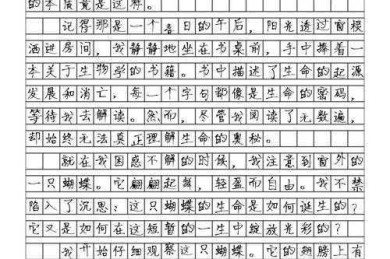 的本质竟是这样。
记得那是一个春日的午后,阳光透过窗棂
洒进房间,我静静地坐在书桌前,手中捧着一
本关于生物学的书籍。书中描述了生命的起源
发展和消亡,每一个字句都像是生命的密码,
等待我去解读。然而,尽管我阅读了无数遍,
却始终无法真正理解生命的奥秘。
就在我困惑不解的时候,我注意到窗外的
一只蝴蝶。它翩翩起舞,轻盈而自由。我不禁
陷入了沉思:这只蝴蝶的生命是如何诞生的?
它又是如何在这短暂的一生中绽放光彩的?
我开始仔细观察这只蝴蝶。它的翅膀上有